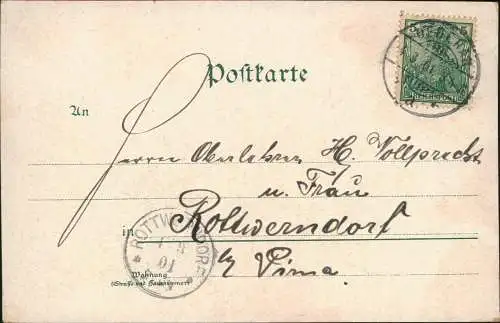 Postkarte
An
Herrn Oberlehrer H. Vollprecht
u. Frau
in Rottwerndorf
b/ Pirna.
ROTTWERNDORF
01
Wohnung
(Straße und Hausnummer)